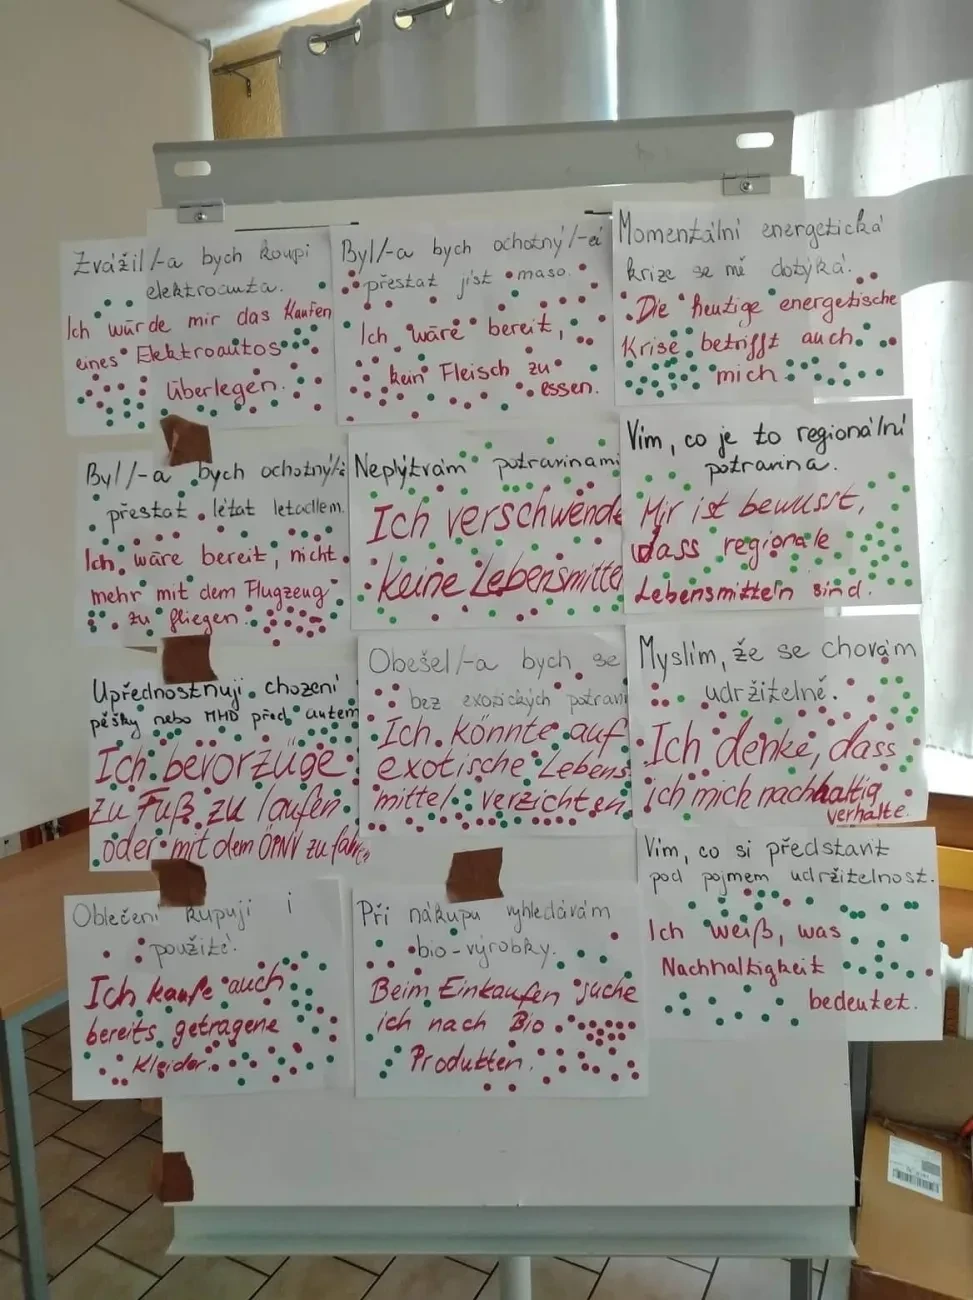 Zvážil/-a bych koupi
elektroauta.
Ich würde mir das Kaufen
eines Elektroautos
überlegen.
Byl/-a bych ochotný/-á
přestat jíst maso.
Ich wäre bereit,
kein Fleisch zu
essen.
Momentální energetická
krize se mě dotýká.
Die heutige energetische
Krise betrifft auch
mich
Byl/-a bych ochotný/á
přestat létat letadlem.
Ich wäre bereit, nicht
mehr mit dem Flugzeug
zu fliegen.
Neplýtvám potravinami
Ich verschwende
keine Lebensmitte
Vím, co je to regionální
potravina.
Mir ist bewusst,
dass regionale
Lebensmitteln sind.
Upřednostňuji chození
pěšky nebo MHD před autem
Ich bevorzüge
zu Fuß zu laufen
oder mit dem ÖPNV zu fahren
Obešel/-a bych se
bez exotických potravin
Ich könnte auf
exotische Lebens
mittel verzichten
Myslím, že se chovám
udržitelně.
Ich denke, dass
ich mich nachhaltig
verhalte.
Oblečení kupuji i
použité.
Ich kaufe auch
bereits getragene
Kleider.
Při nákupu vyhledávám
bio-výrobky.
Beim Einkaufen suche
ich nach Bio
Produkten.
Vím, co si představit
pod pojmem udržitelnost.
Ich weiß, was
Nachhaltigkeit
bedeutet.